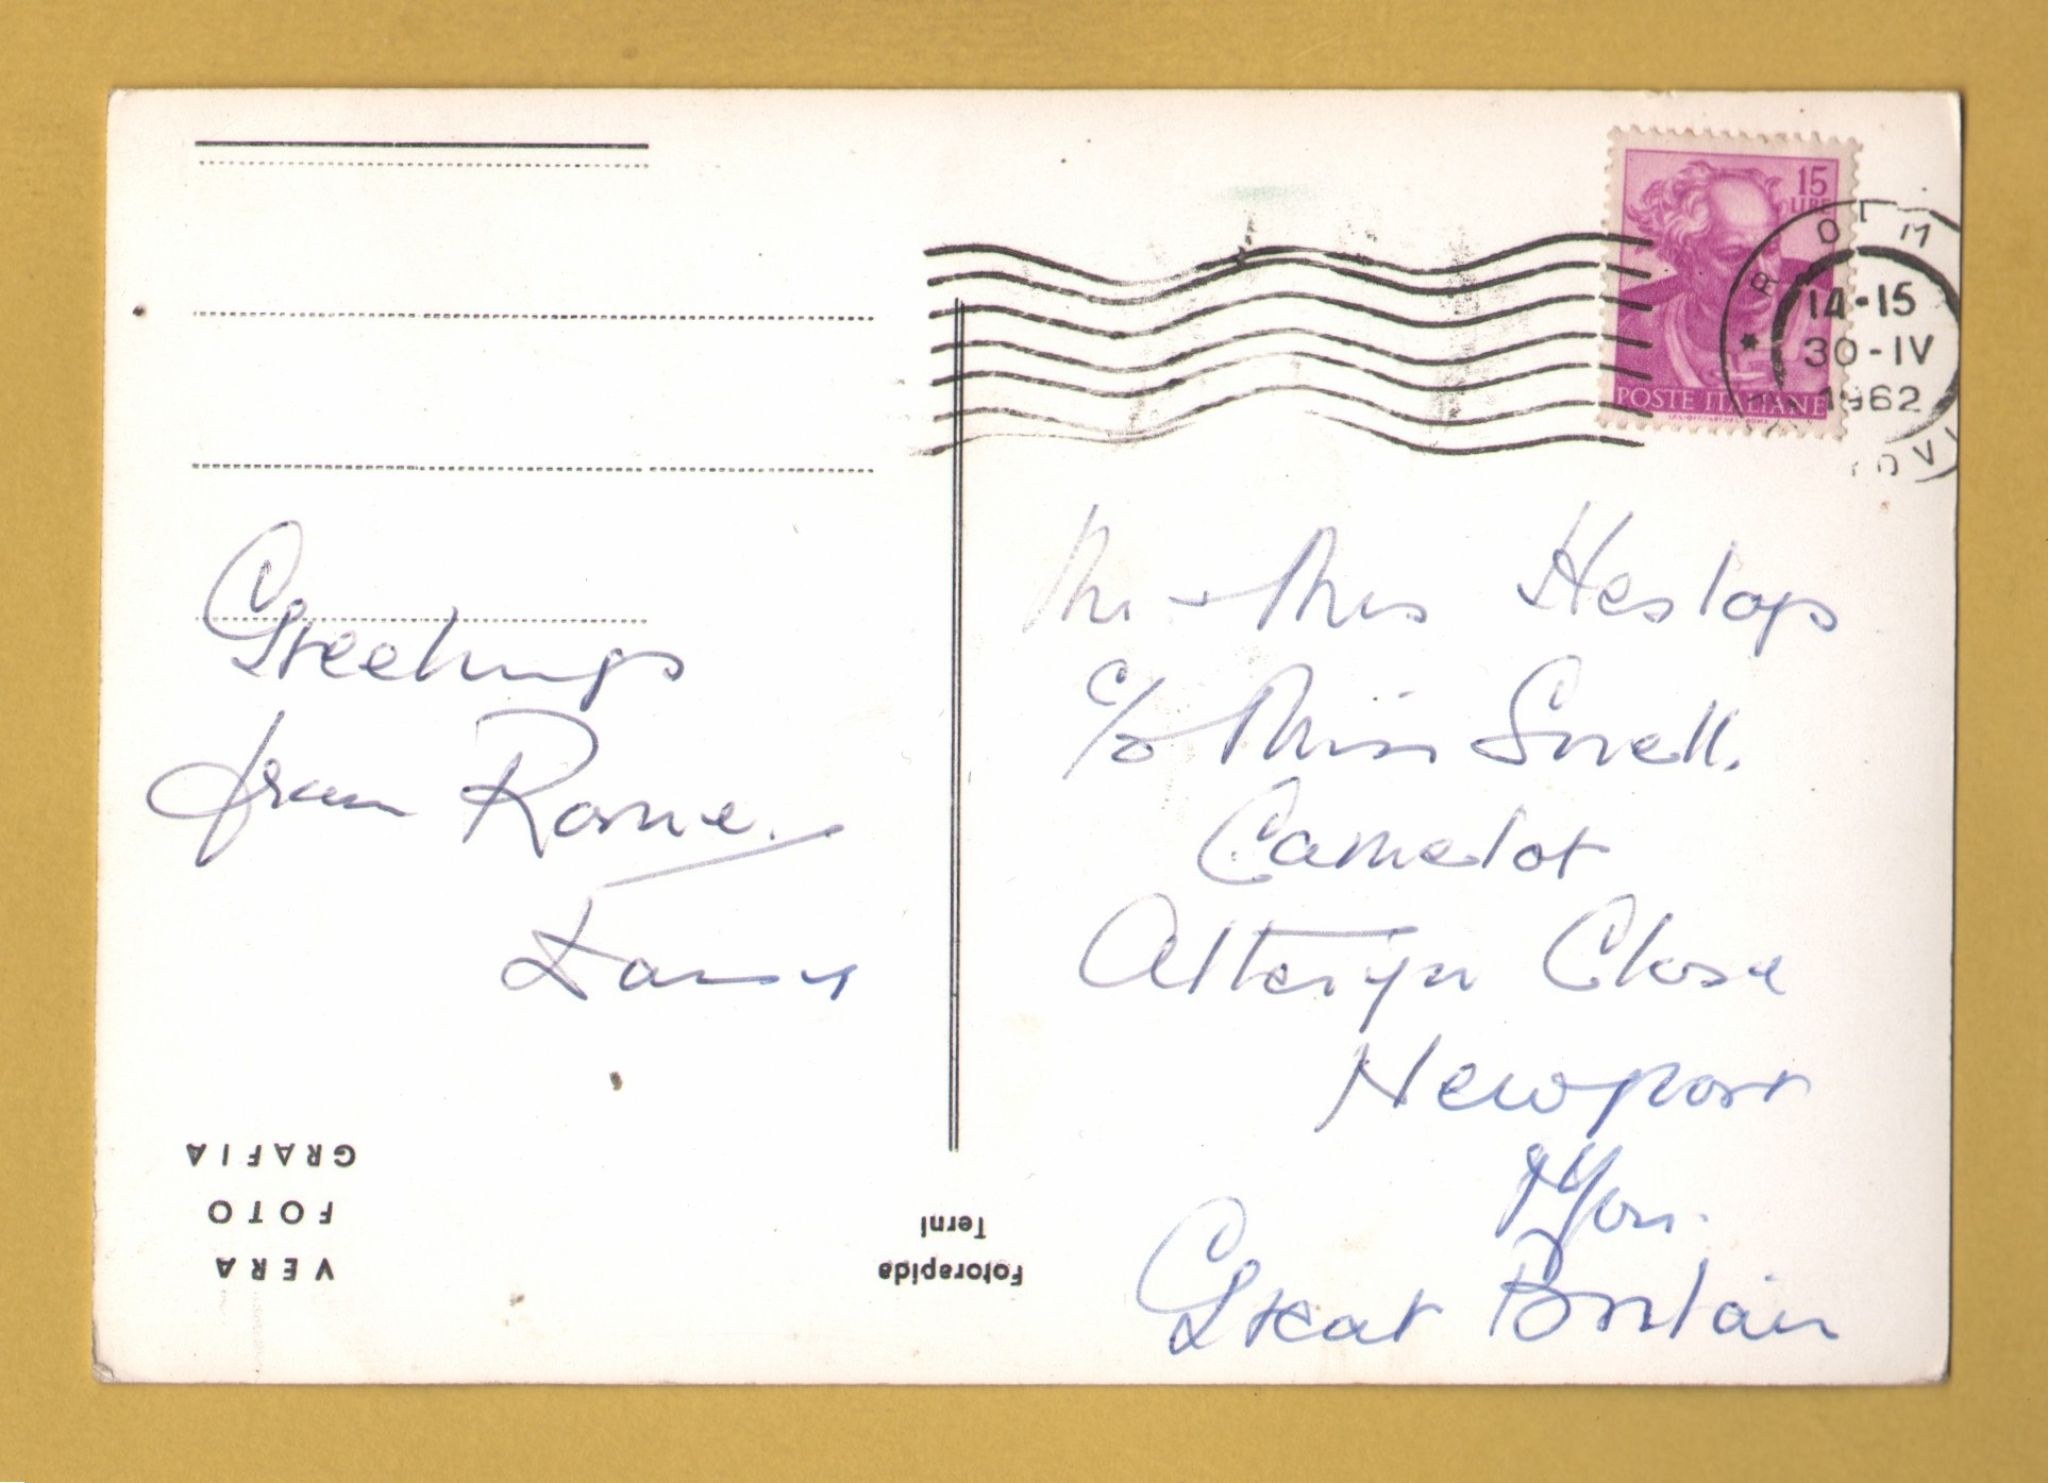 15
LIRE
POSTE ITALIANE
ROMA
14-15
30-IV
1962
Greetings
from Rome.
Mr + Mrs Heslop
c/o Miss Snell.
Camelot
Allteryn Close
Newport
Mon.
Great Britain
VERA
FOTO
GRAFIA
Fotorapida
Terni